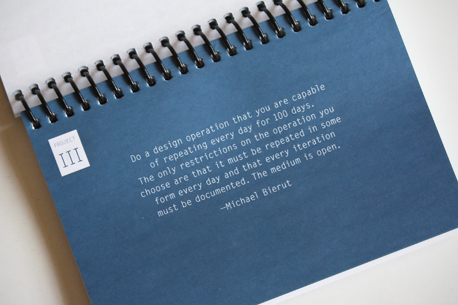 PROJECT
III
Do a design operation that you are capable
of repeating every day for 100 days.
The only restrictions on the operation you
choose are that it must be repeated in some
form every day and that every iteration
must be documented. The medium is open.
—Michael Bierut